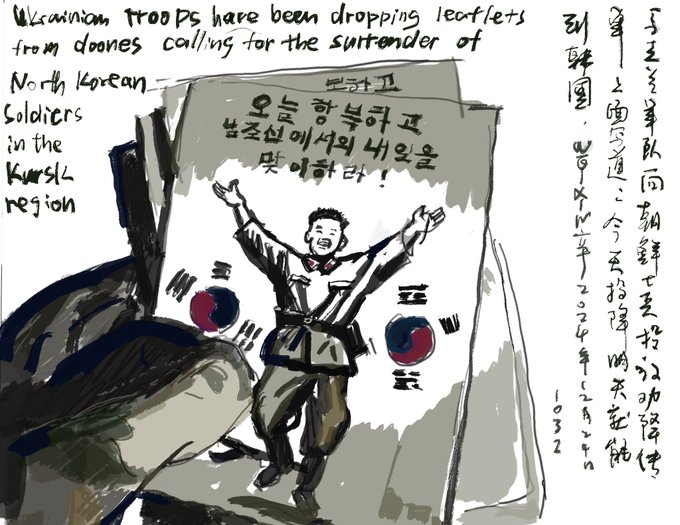 Ukrainian troops have been dropping leaflets
from drones calling for the surrender of
North Korean
Soldiers
in the
Kursk
region
오늘 항복하고
남조선에서의 내일을
맞이하라!
乌克兰军队向朝鲜士兵投放劝降传
单上面写道：今天投降明天就能
到韩国. 2024年12月24日
1032